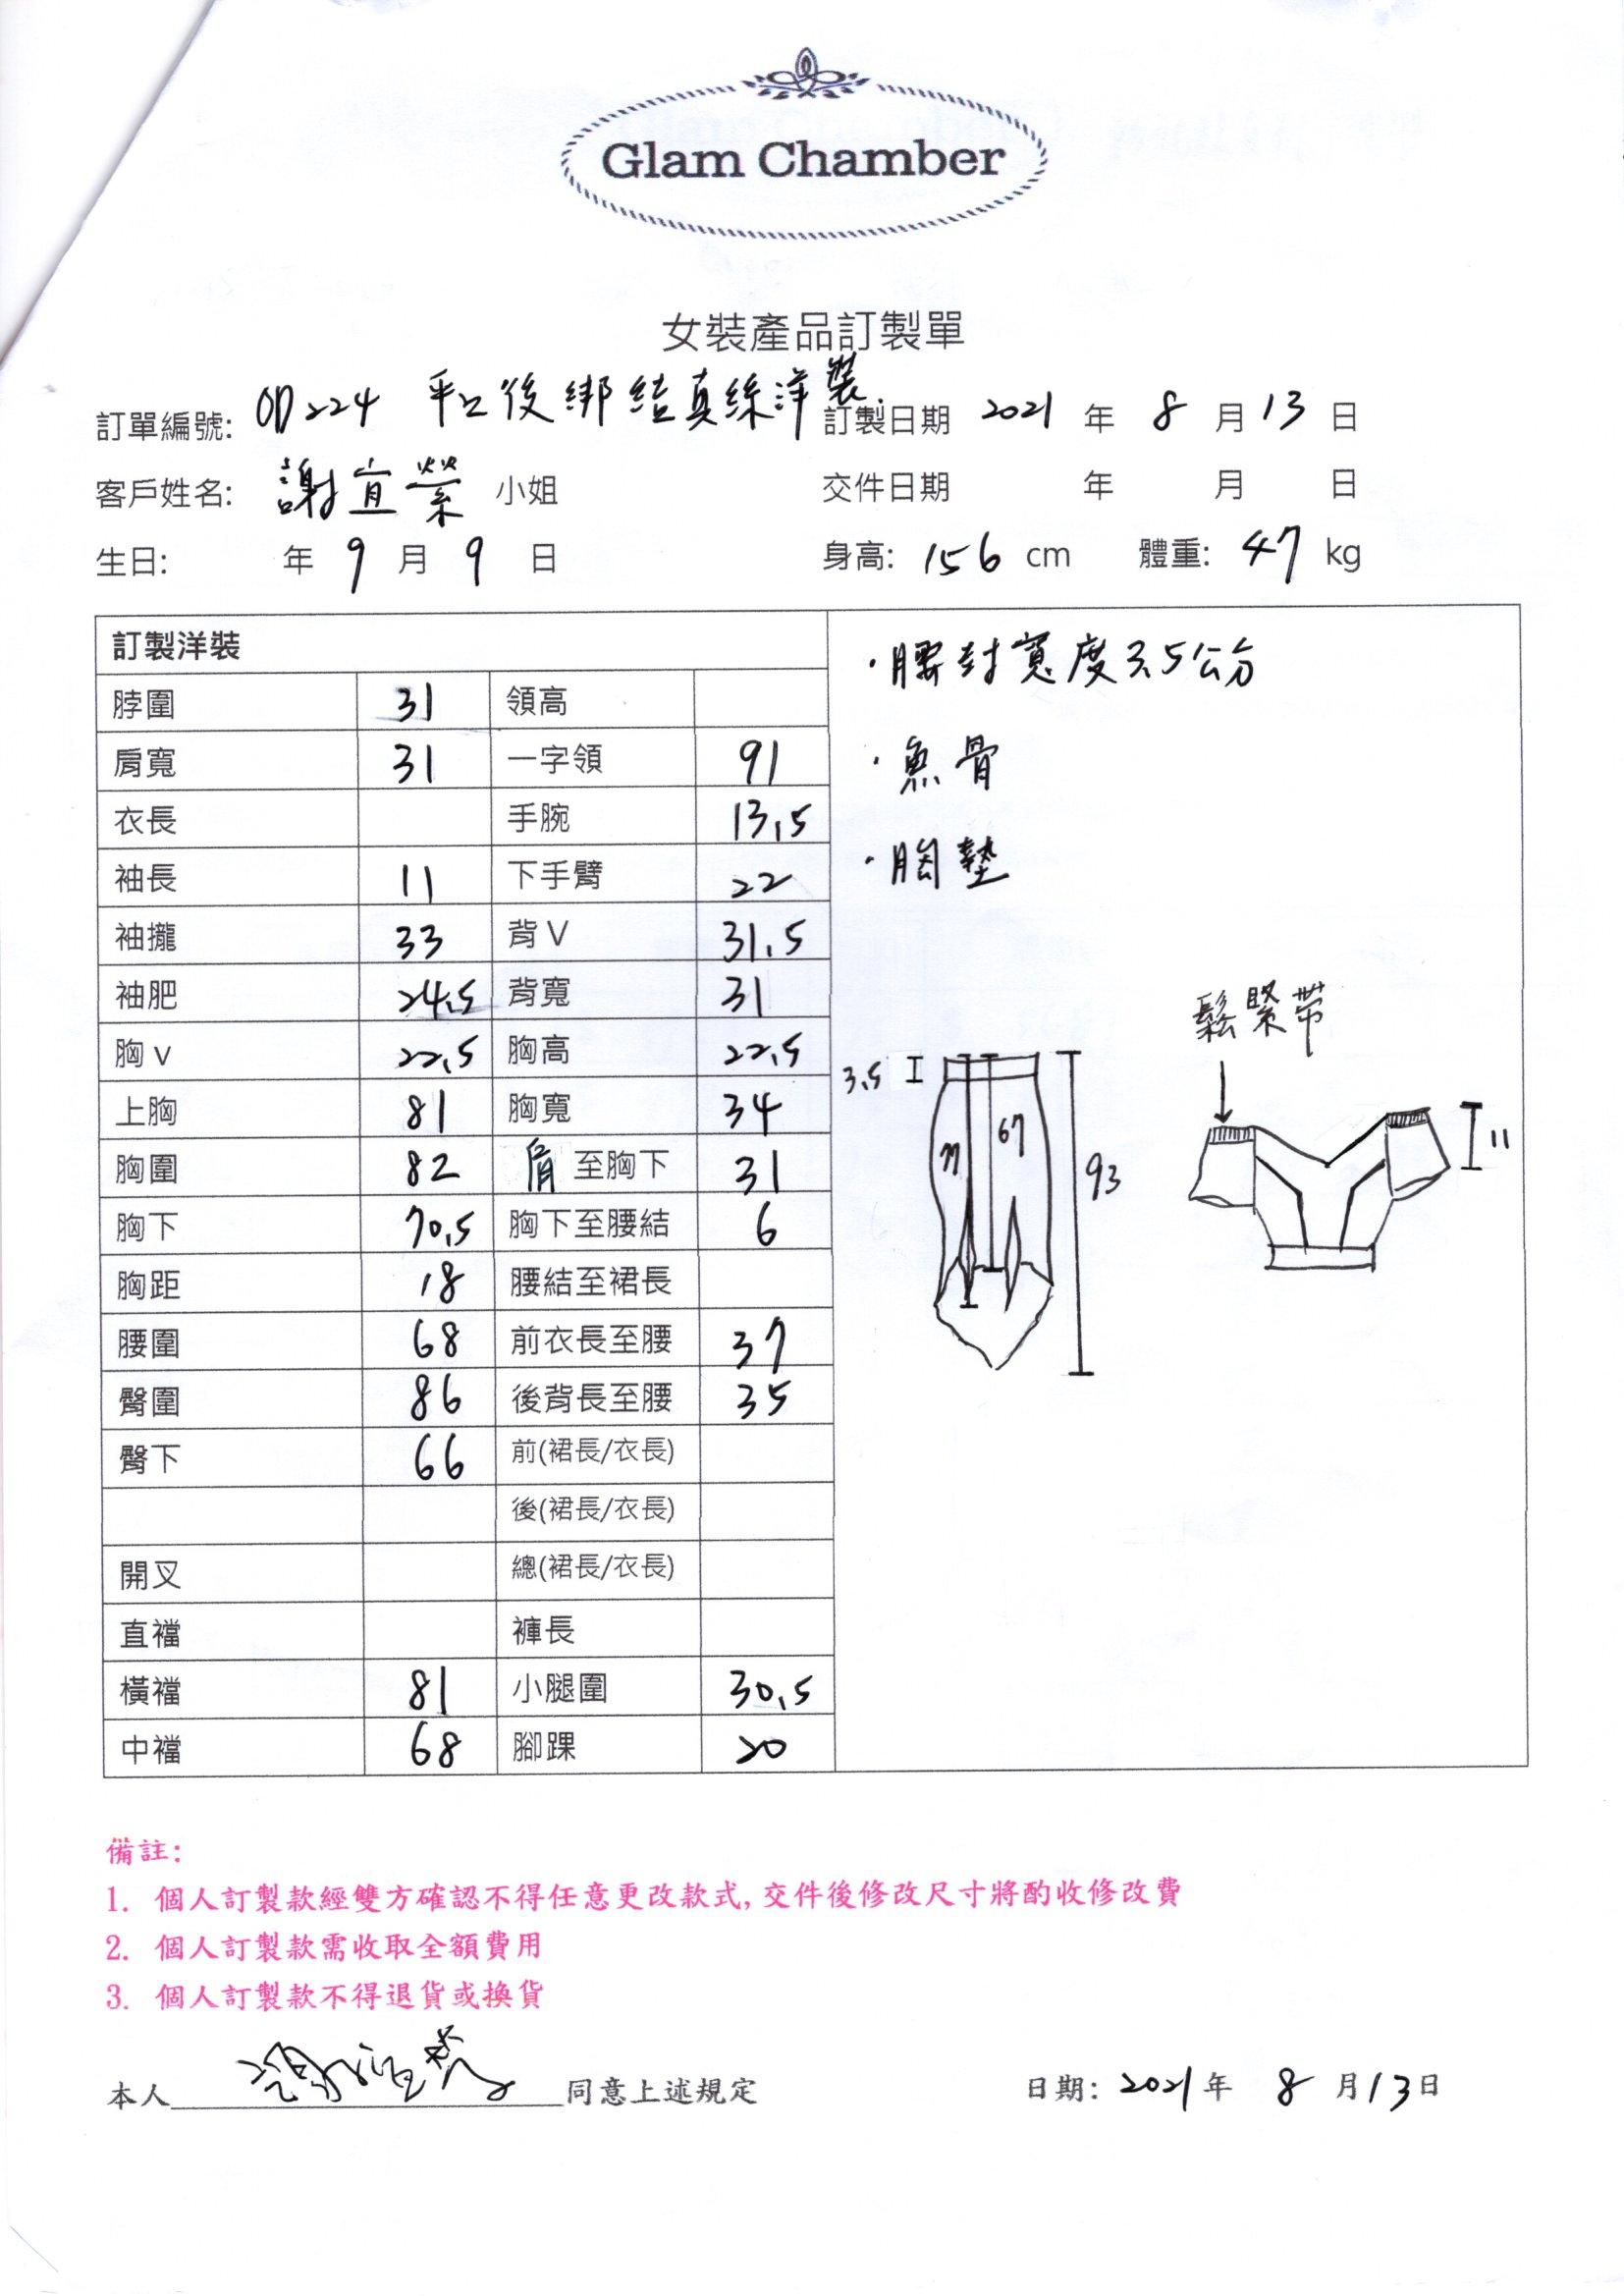 Glam Chamber
女裝產品訂製單
訂單編號: OD224 平口後綁結真絲洋裝 訂製日期 2021 年 8 月 13 日
客戶姓名: 謝宜縈 小姐 交件日期 年 月 日
生日: 年 9 月 9 日 身高: 156 cm 體重: 47 kg
訂製洋裝
脖圍 31 領高
肩寬 31 一字領 91
衣長 手腕 13.5
袖長 11 下手臂 22
袖攏 33 背V 31.5
袖肥 24.5 背寬 31
胸v 22.5 胸高 22.5
上胸 81 胸寬 34
胸圍 82 肩至胸下 31
胸下 70.5 胸下至腰結 6
胸距 18 腰結至裙長
腰圍 68 前衣長至腰 37
臀圍 86 後背長至腰 35
臀下 66 前(裙長/衣長)
後(裙長/衣長)
開叉 總(裙長/衣長)
直襠 褲長
橫襠 81 小腿圍 30.5
中襠 68 腳踝 20
·腰封寬度3.5公分
·魚骨
·胸墊
鬆緊帶
3.5 77 67 93 11
備註:
1. 個人訂製款經雙方確認不得任意更改款式,交件後修改尺寸將酌收修改費
2. 個人訂製款需收取全額費用
3. 個人訂製款不得退貨或換貨
本人 謝宜縈 同意上述規定 日期: 2021 年 8 月 13 日